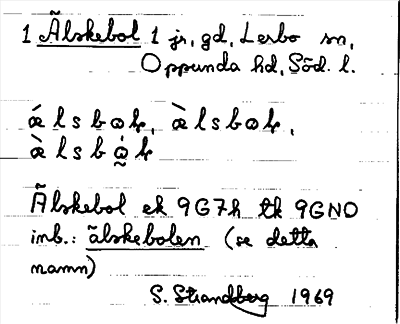 1 Älskebol 1 jr, gd, Lerbo sn,
Oppunda hd, Söd. l.
ǽ l s b ω ɫ, æ̀ l s b ω ɫ,
æ̀ l s b ὼ ɫ
Älskebol ek 9G7h tk 9GNO
inb.: älskebolen (se detta
namn)
S. Strandberg 1969